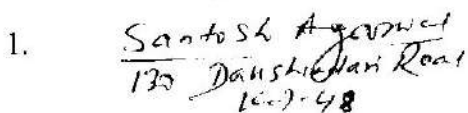 1. Santosh Agarwal
130 Dakshindari Road
Kol-48